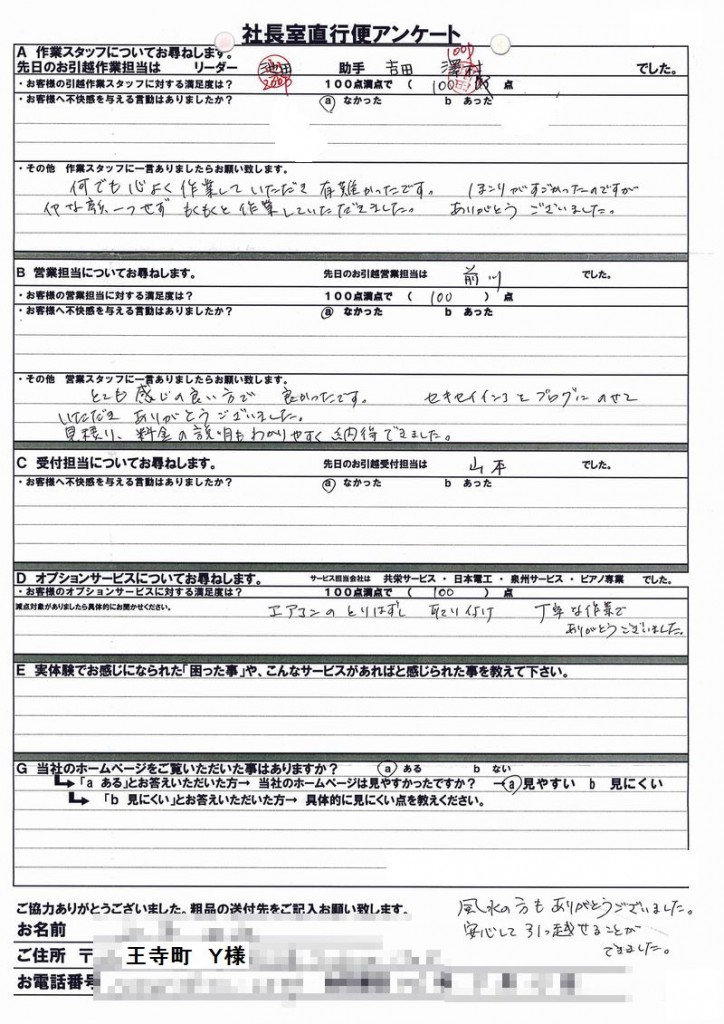 社長室直行便アンケート
A 作業スタッフについてお尋ねします。
先日のお引越作業担当は リーダー 池田 助手 吉田 澤村 でした。
・お客様の引越作業スタッフに対する満足度は? 100点満点で ( 100 ) 点
・お客様へ不快感を与える言動はありましたか? a なかった b あった
・その他 作業スタッフに一言ありましたらお願い致します。
何でも心よく作業していただき 有難かったです。 ほこりがすごかったのですが
イヤな顔一つせず もくもくと作業していただきました。 ありがとうございました。
B 営業担当についてお尋ねします。 先日のお引越営業担当は 前川 でした。
・お客様の営業担当に対する満足度は? 100点満点で ( 100 ) 点
・お客様へ不快感を与える言動はありましたか? a なかった b あった
・その他 営業スタッフに一言ありましたらお願い致します。
とても感じの良い方で 良かったです。 セキセイインコをブログにのせて
いただき ありがとうございました。
見積り、料金の説明もわかりやすく納得できました。
C 受付担当についてお尋ねします。 先日のお引越受付担当は 山本 でした。
・お客様へ不快感を与える言動はありましたか? a なかった b あった
D オプションサービスについてお尋ねします。 サービス担当会社は 共栄サービス ・ 日本電工 ・ 泉州サービス ・ ピアノ専業 でした。
・お客様のオプションサービスに対する満足度は? 100点満点で ( 100 ) 点
減点対象がありましたら具体的にお聞かせください。 エアコンのとりはずし 取り付け 丁寧な作業で
ありがとうございました。
E 実体験でお感じになられた「困った事」や、こんなサービスがあればと感じられた事を教えて下さい。
G 当社のホームページをご覧いただいた事はありますか? a ある b ない
「a ある」とお答えいただいた方→ 当社のホームページは見やすかったですか? →a 見やすい b 見にくい
「b 見にくい」とお答えいただいた方→ 具体的に見にくい点を教えください。
ご協力ありがとうございました。粗品の送付先をご記入お願い致します。
風水の方もありがとうございました。
安心して引っ越せることが
できました。
お名前
ご住所 〒 王寺町 Y様
お電話番号